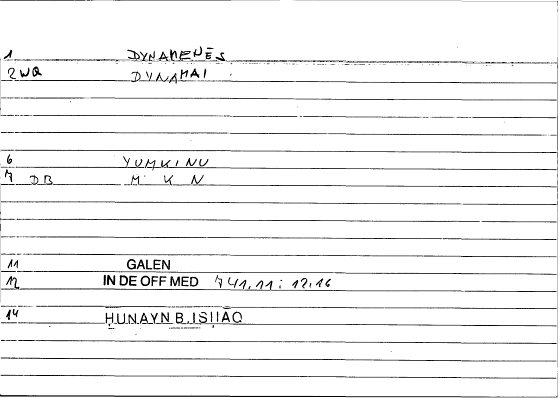 1 DYNAMENĒS
2 WQ DYNAMAI
6 YUMKINU
7 DB M K N
11 GALEN
12 IN DE OFF MED 741.11 : 12.16
14 ḤUNAYN B. ISḤĀQ